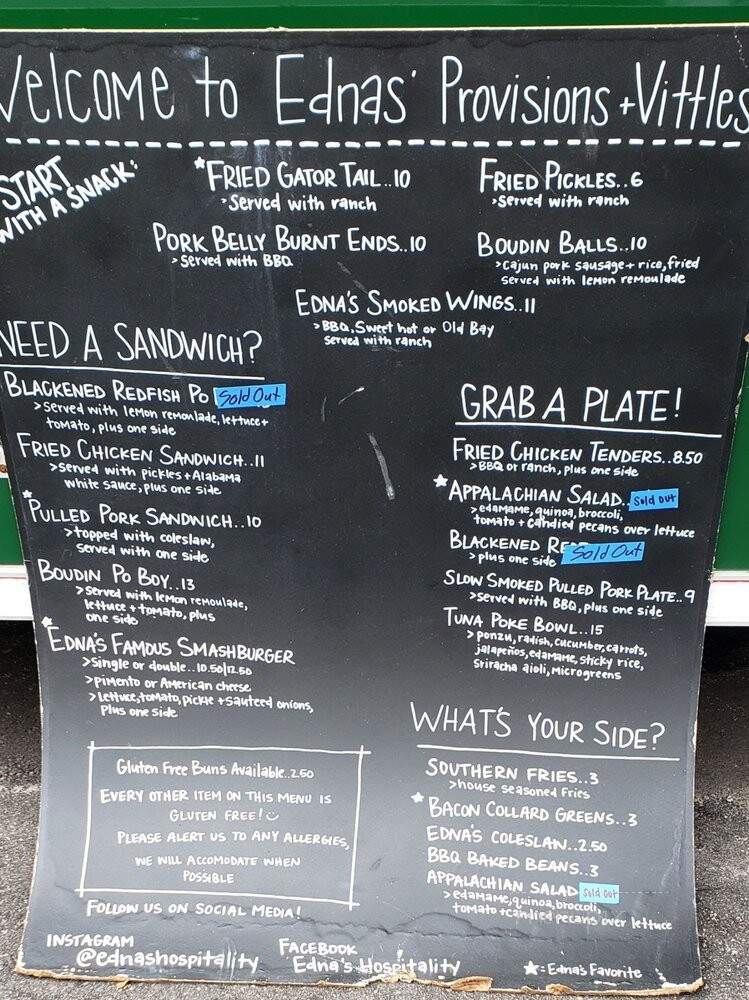 Welcome to Ednas' Provisions + Vittles
START
WITH A SNACK:
*FRIED GATOR TAIL..10
>Served with ranch
FRIED PICKLES..6
>served with ranch
PORK BELLY BURNT ENDS..10
>Served with BBQ
BOUDIN BALLS..10
>Cajun pork sausage + rice, fried
served with lemon remoulade
EDNA'S SMOKED WINGS..11
>BBQ, Sweet hot or Old Bay
served with ranch
NEED A SANDWICH?
BLACKENED REDFISH PO Sold Out
>Served with lemon remoulade, lettuce +
tomato, plus one side
FRIED CHICKEN SANDWICH..11
>served with pickles + Alabama
white sauce, plus one side
*PULLED PORK SANDWICH..10
>topped with coleslaw,
served with one side
BOUDIN PO BOY..13
>Served with lemon remoulade,
lettuce + tomato, plus
one side
*EDNA'S FAMOUS SMASHBURGER
>Single or double..10.50|12.50
>pimento or American cheese
>lettuce, tomato, pickle + sauteed onions,
Plus one side
GRAB A PLATE!
FRIED CHICKEN TENDERS..8.50
>BBQ or ranch, plus one side
*APPALACHIAN SALAD.. Sold out
>edamame, quinoa, broccoli,
tomato + candied pecans over lettuce
BLACKENED RE Sold Out
>plus one side
SLOW SMOKED PULLED PORK PLATE..9
>served with BBQ, plus one side
TUNA POKE BOWL..15
>ponzu, radish, cucumber, carrots,
jalapeños, edamame, sticky rice,
Sriracha aioli, microgreens
WHAT'S YOUR SIDE?
SOUTHERN FRIES..3
>house seasoned fries
*BACON COLLARD GREENS..3
EDNA'S COLESLAW..2.50
BBQ BAKED BEANS..3
APPALACHIAN SALAD Sold out
>edamame, quinoa, broccoli,
tomato + candied pecans over lettuce
Gluten Free Buns Available..2.50
EVERY OTHER ITEM ON THIS MENU IS
GLUTEN FREE!
PLEASE ALERT US TO ANY ALLERGIES,
WE WILL ACCOMODATE WHEN
POSSIBLE
FOLLOW US ON SOCIAL MEDIA!
INSTAGRAM
@ednashospitality
FACEBOOK
Edna's Hospitality
★=Edna's Favorite